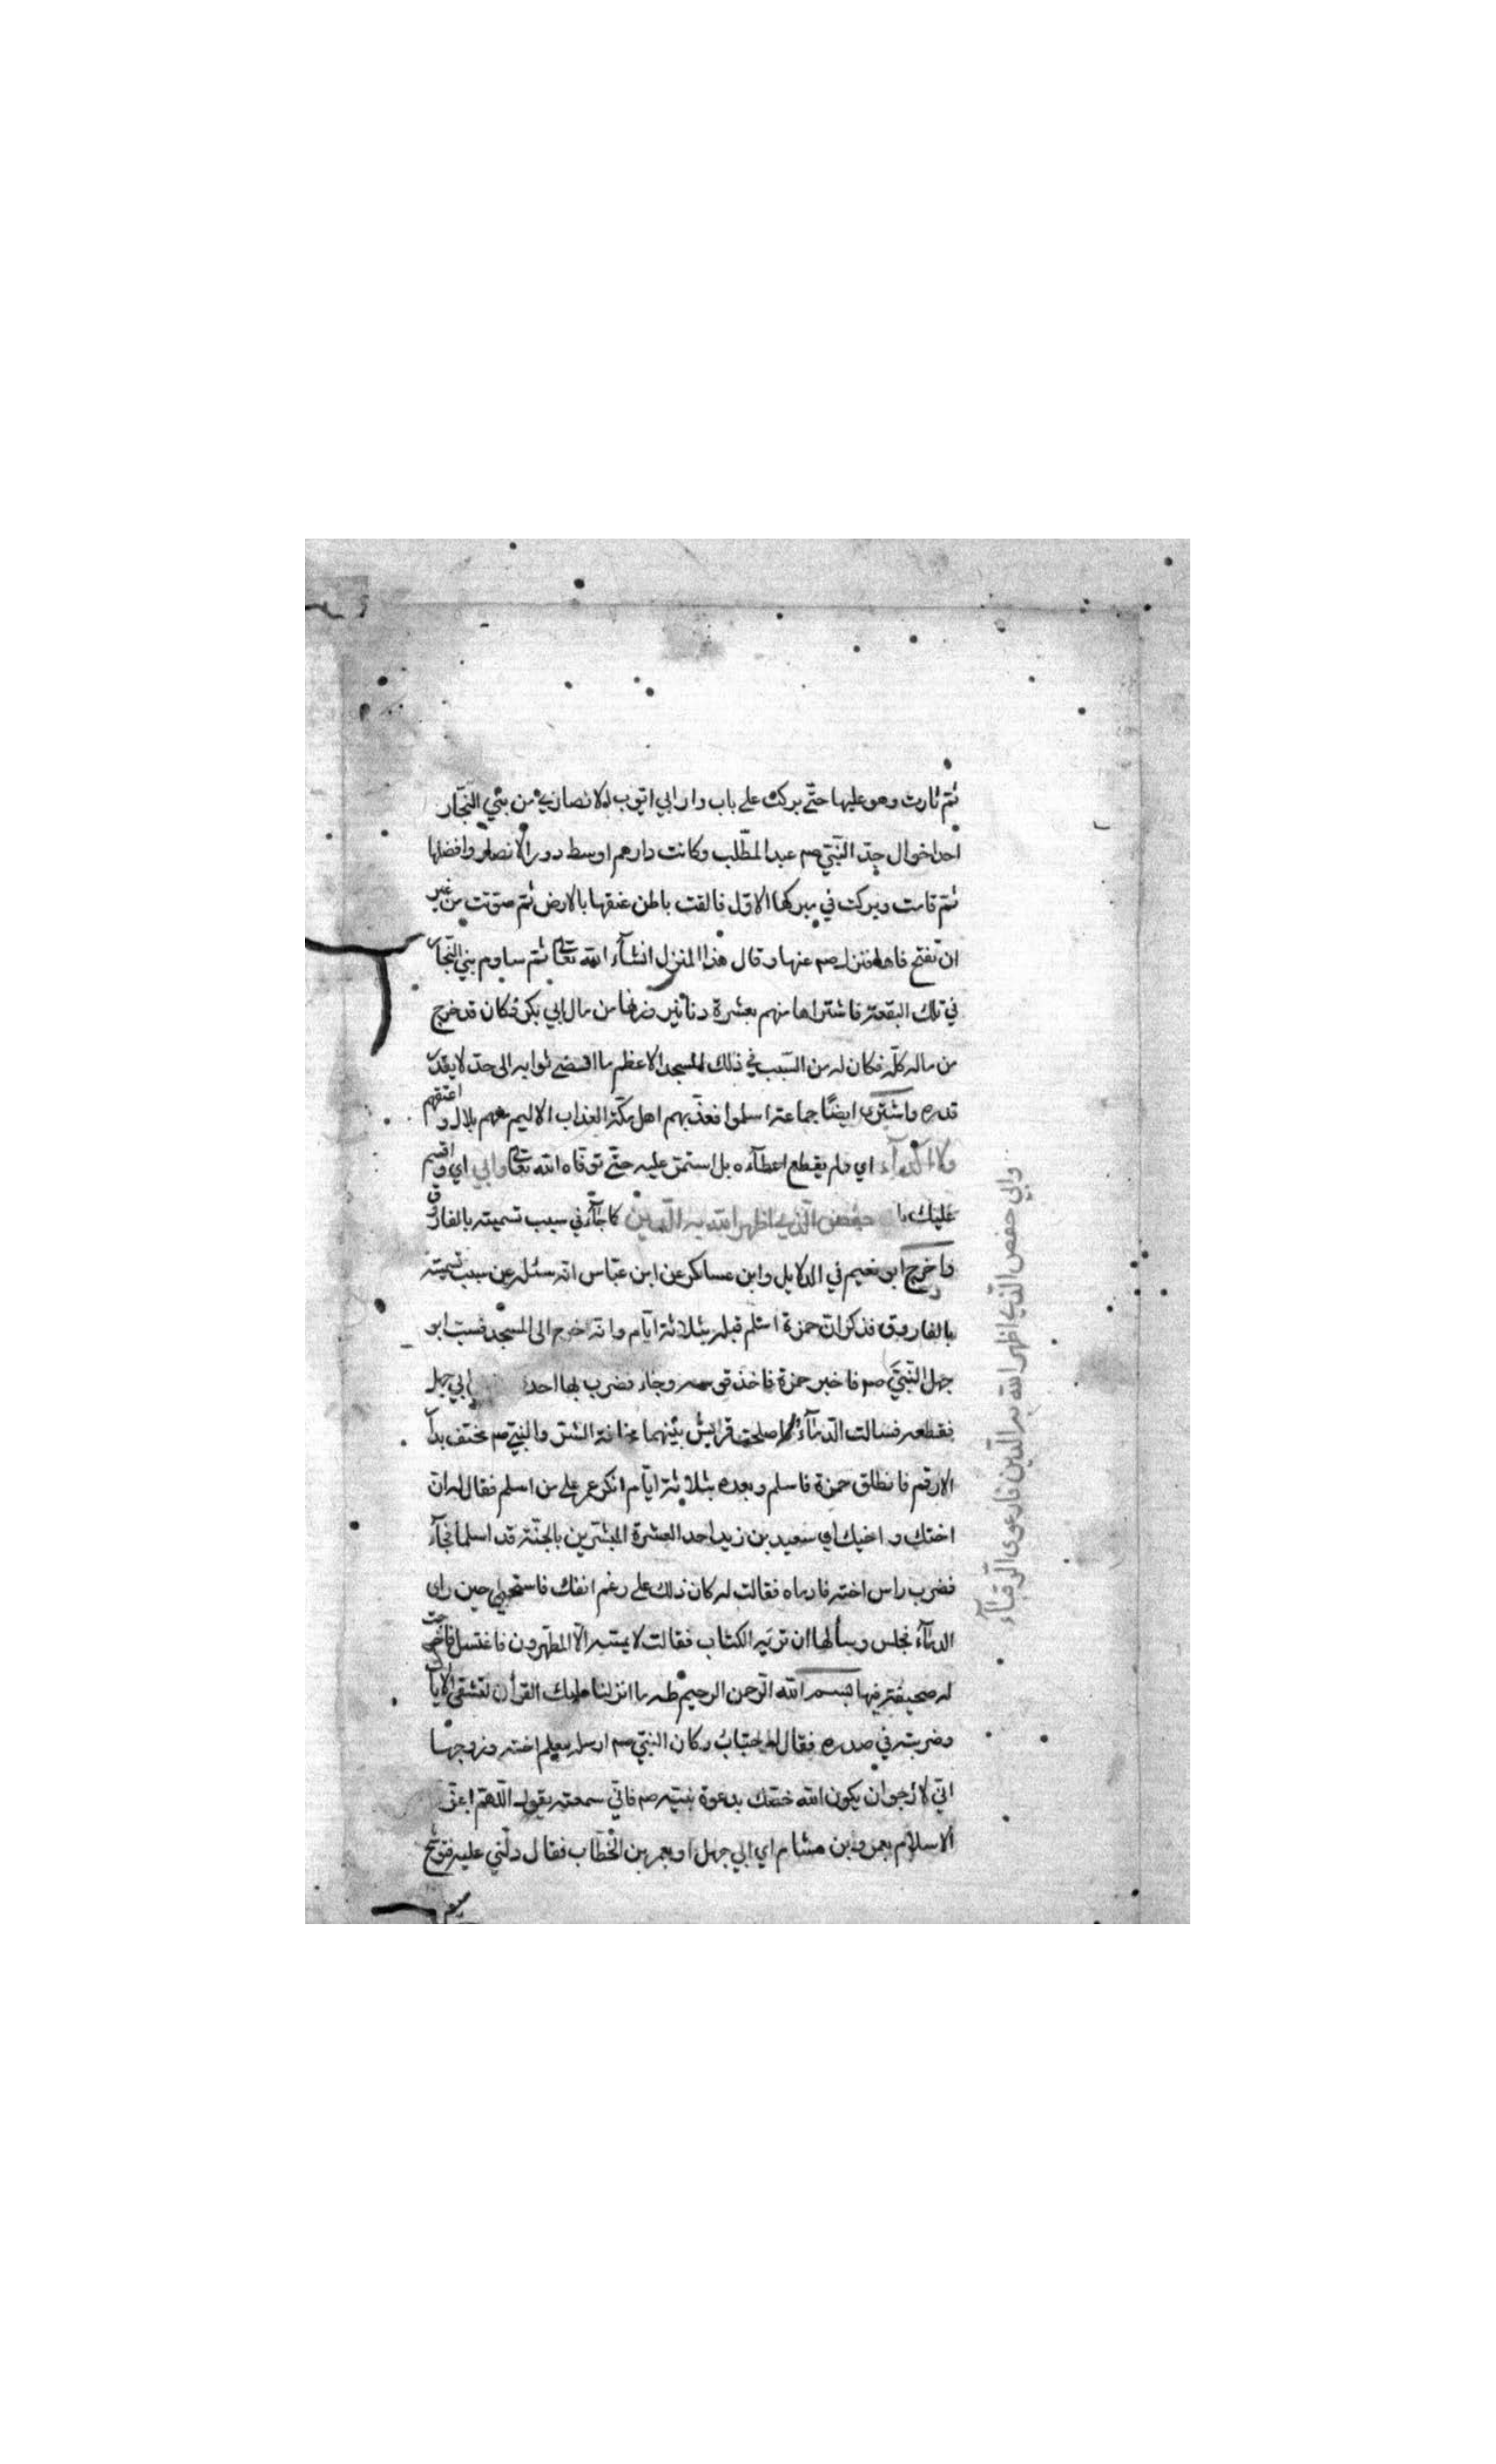 ثم ثارت وهو عليها حتّى بركت على باب دار ابي ايّوب الانصاري من بني النجّار
احد اخوال جدّ النّبيّ صم عبد المطّلب وكانت دارهم اوسط دور الانصار وافضلها
ثمّ قامت وبركت في مبركها الاوّل فالقت باطن عنقها بالارض ثمّ صوّتت من غير
ان تفتح فاها فنزل صم عنها وقال هذا المنزل انشآء الله تعالى ثمّ ساوم بني النجّار
في تلك البقعة فاشتراها منهم بعشرة دنانير وزنها من مال ابي بكر فكان قد خرج
من ماله كلّه فكان له من السّبب في ذلك المسجد الاعظم ما اقتضى ثوابه الى حدّ لا يقدر
قدره واشترى ايضًا جماعة اسلموا فعذّبهم اهل مكّة العذاب الاليم منهم بلال واعتقهم
ولاء اي ولم يقطع اعطآءه بل استمرّ عليه حتّى توفّاه الله تعالى وابي اي واقسم
عليك با حفص الّذي اظهر الله به الدّين كما جآء في سبب تسميته بالفاروق
واخرج ابو نعيم في الدلايل وابن عساكر عن ابن عبّاس انّه سئل عن سبب تسميته
بالفاروق فذكر انّ حمزة اسلم قبله بثلاثة ايّام وانّه خرج الى المسجد فسبّ ابو
جهل النّبيّ صم فاخبر حمزة فاخذ قوسه وجاء فضرب بها احد ابي جهل
فقطعه فسالت الدّمآء فاصلحت قرايش بينهما مخافة الشرّ والنبيّ صم مختف بدار
الارقم فانطلق حمزة فاسلم وبعده بثلاثة ايّام انكر عمر على من اسلم فقال له ان
اختك و اي سعيد بن زيد احد العشرة المبشّرين بالجنّة قد اسلما فجآء
فضرب راس اخته فادماه فقالت له كان ذلك على رغم انفك فاستحيى حين راى
الدمآء فجلس وسألها ان تريه الكتاب فقالت لا يمسّه الّا المطهّرون فاغتسل فاخرجت
له صحيفة فيها بسم الله الرّحمن الرحيم طه ما انزلنا عليك القرأن لتشقى الايات
وضربت في صدره فقال له خبّاب وكان النبيّ صم ارسله يعلم اخته وزوجها
انّي لارجو ان يكون الله خصّك بدعوة نبيّه صم فانّي سمعته يقول اللّهمّ اعزّ
الاسلام بعمرو بن هشام اي ابي جهل او بعمر بن الخطّاب فقال دلّني عليه
وابي حفص الّذي اظهر الله به الدّين فارعوى الرّقبآء